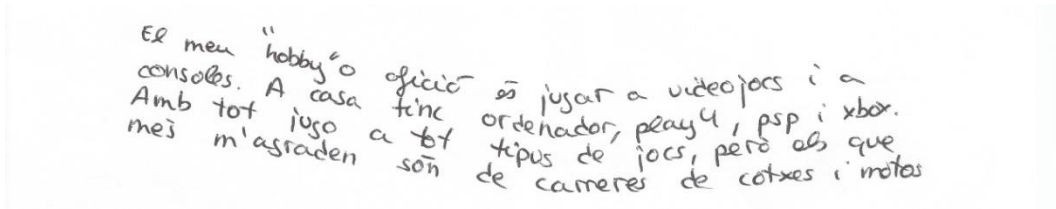 El meu "hobby" o oficiò és jugar a videojocs i a
consoles. A casa tinc ordenador, play 4, psp i xbox.
Amb tot jugo a tot tipus de jocs, però els que
mès m'agraden són de carreres de cotxes i motos